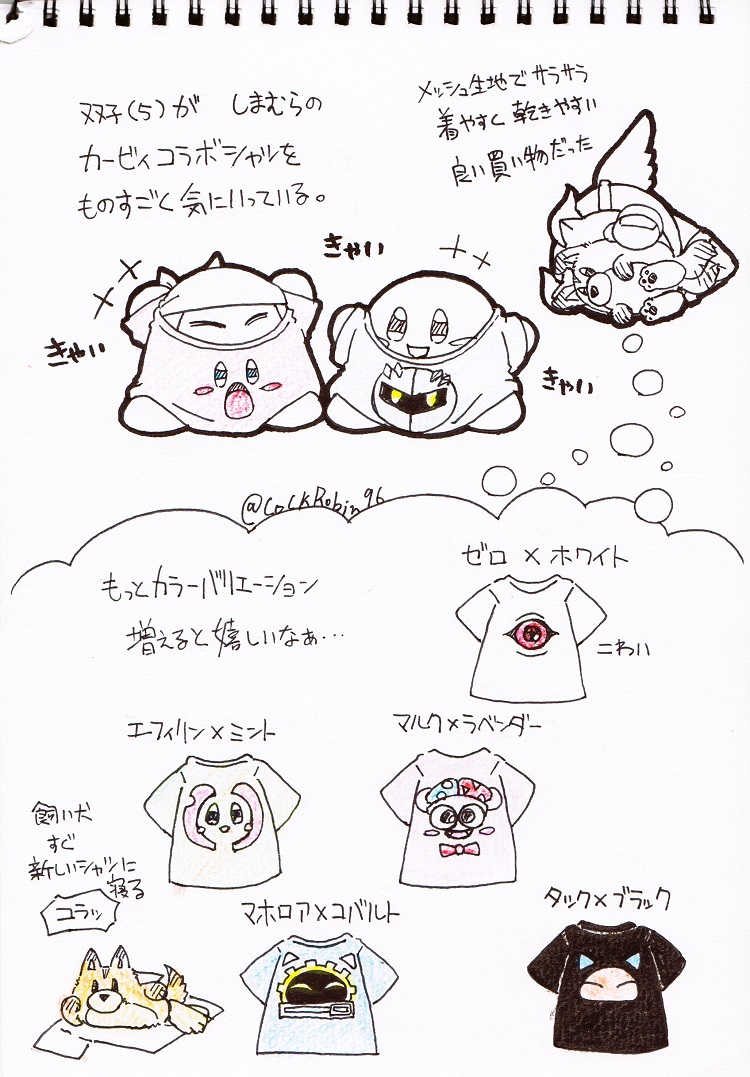 双子(5)が しまむらの
カービィコラボシャツを
ものすごく気にいっている。
メッシュ生地でサラサラ
着やすく乾きやすい
良い買い物だった
きゃい
きゃい
きゃい
@CockRobin96
もっとカラーバリエーション
増えると嬉しいなぁ…
ゼロ×ホワイト
こわい
エフィリン×ミント
マルク×ラベンダー
飼い犬
すぐ
新しいシャツに
寝る
コラッ
マホロア×コバルト
タック×ブラック